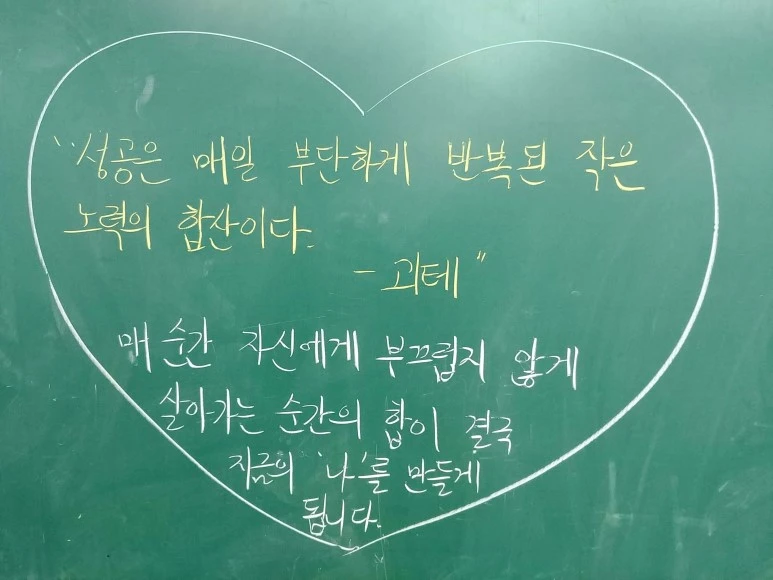 "성공은 매일 부단하게 반복된 작은
노력의 합산이다.
- 괴테"
매 순간 자신에게 부끄럽지 않게
살아가는 순간의 합이 결국
지금의 '나'를 만들게
됩니다.